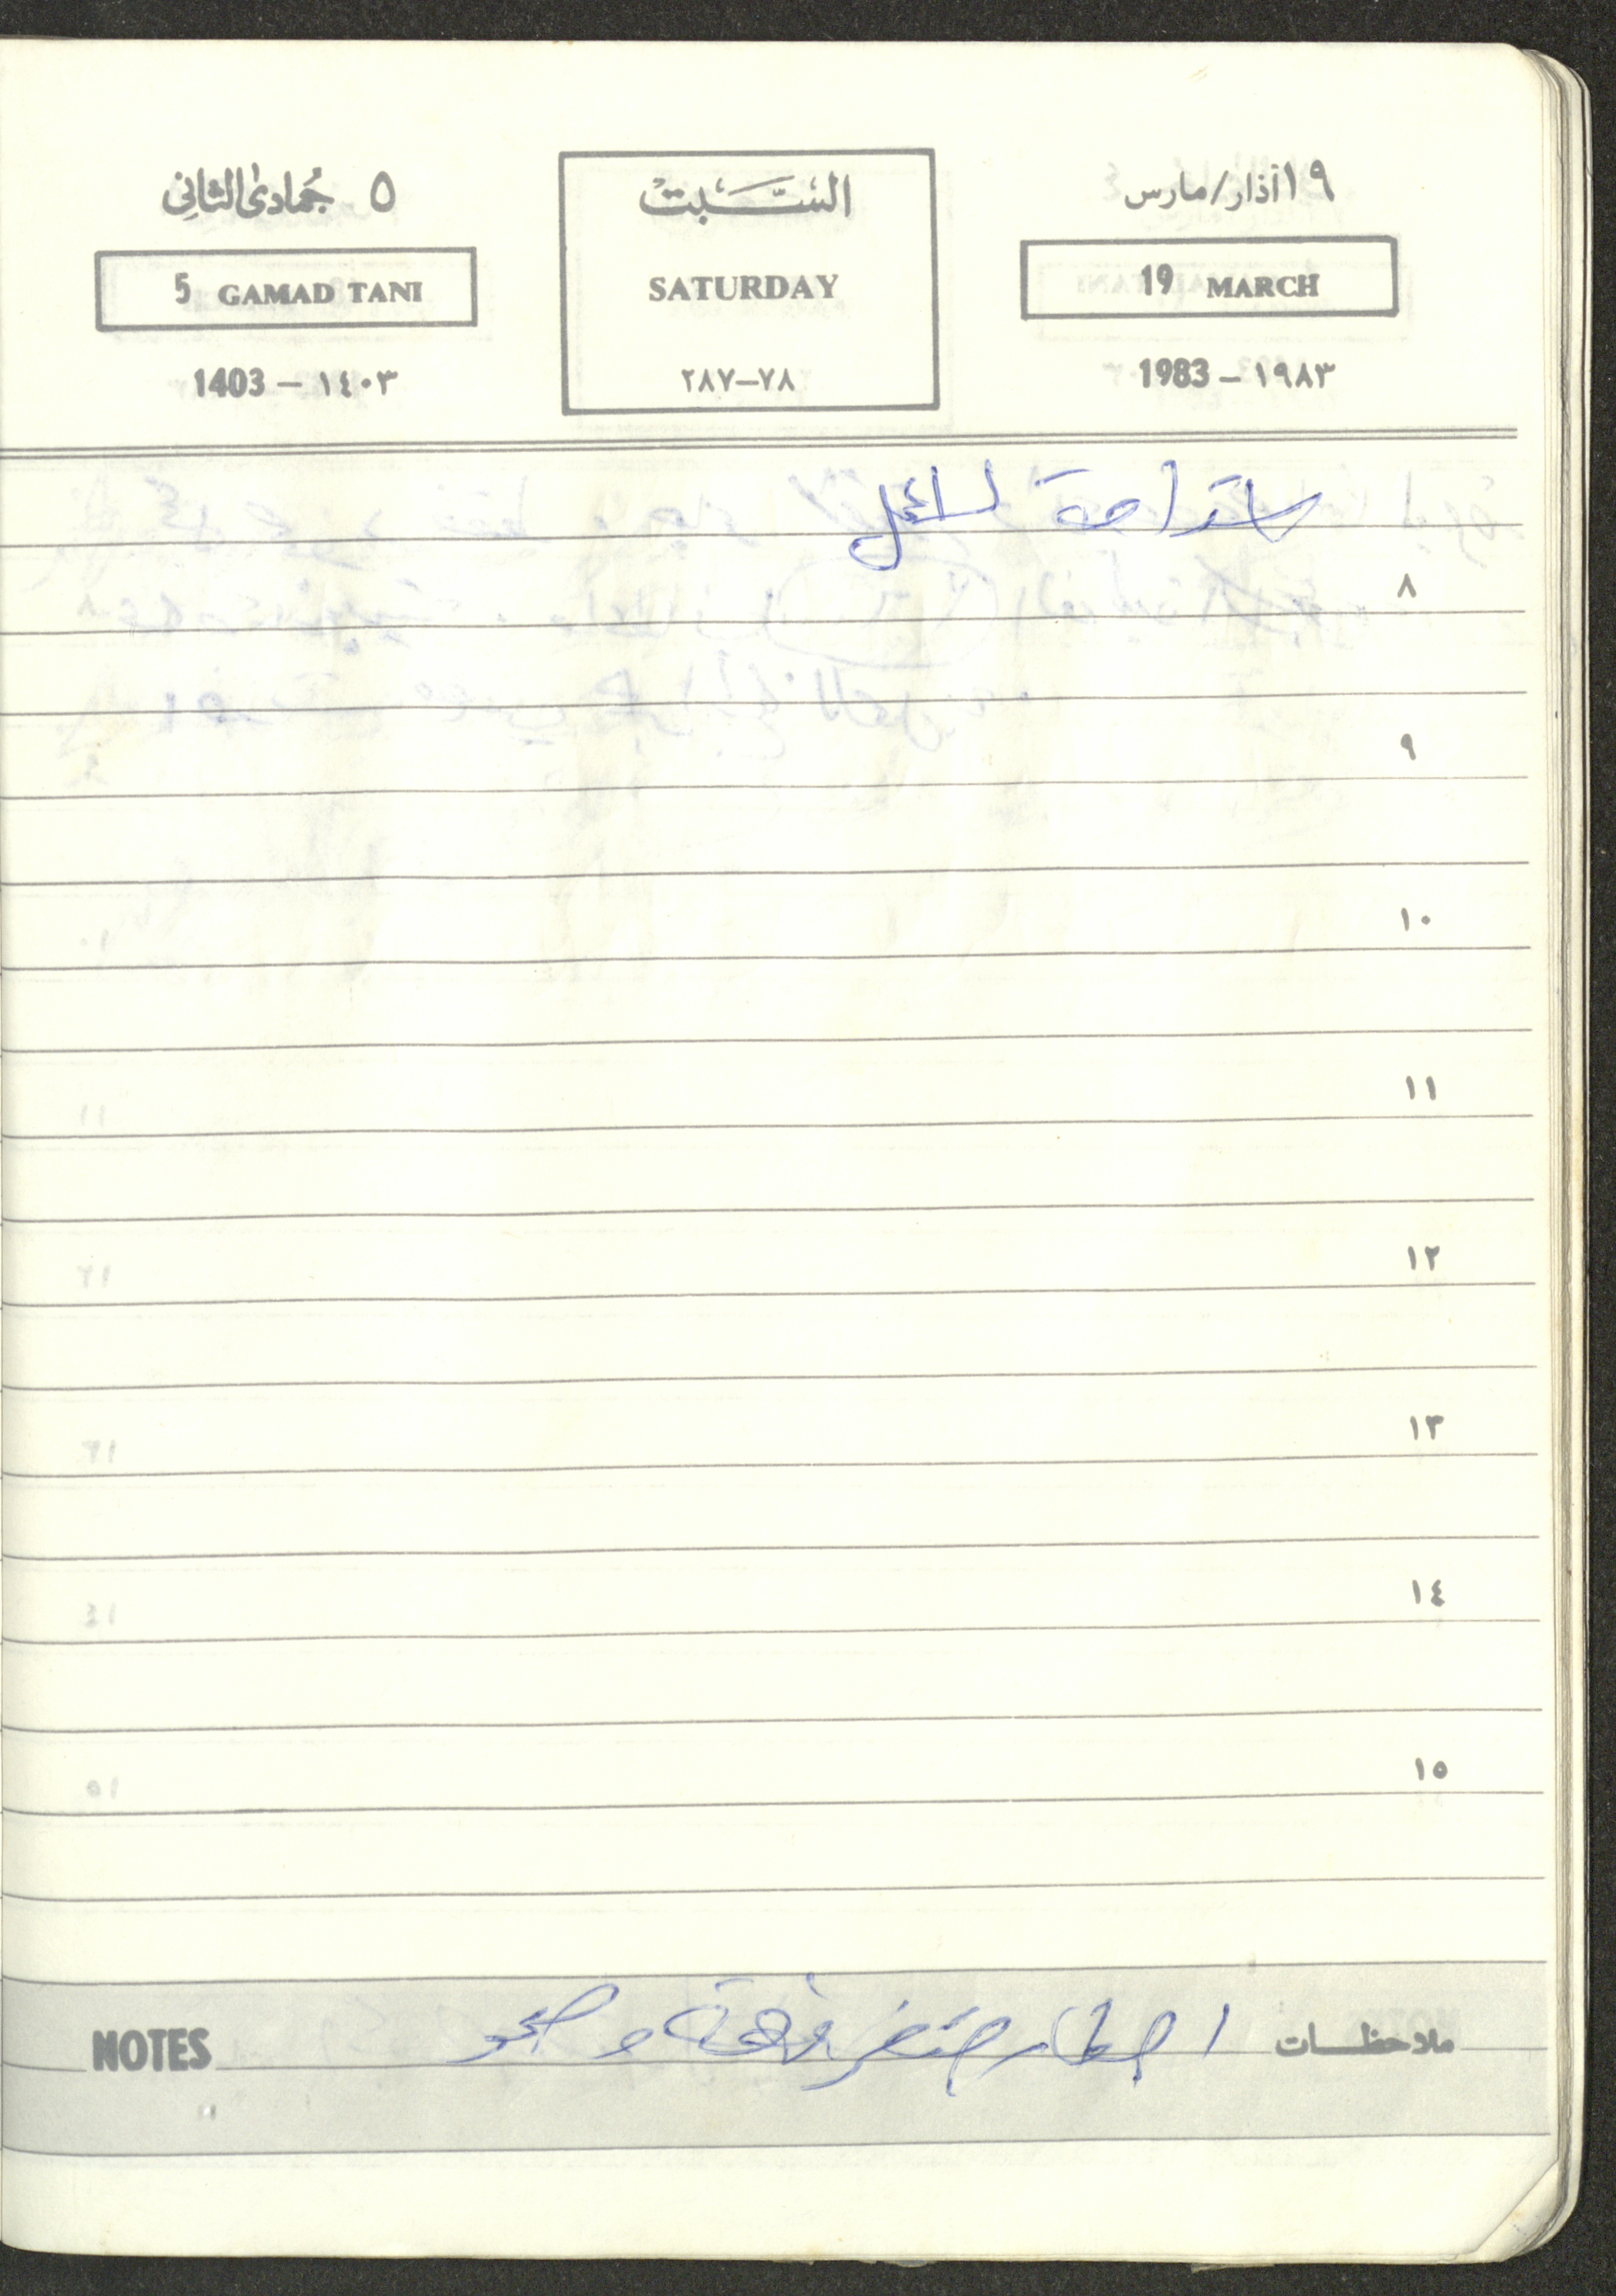 ١٩ آذار/مارس
السَّبت
٥ جُمادىٰ الثاني
19 MARCH
SATURDAY
5 GAMAD TANI
1983 – ١٩٨٣
٢٨٧–٧٨
1403 – ١٤٠٣
استراحة للعمل
٨
٩
١٠
١١
١٢
١٣
١٤
١٥
ملاحظات امطار متفرقة وصحو NOTES